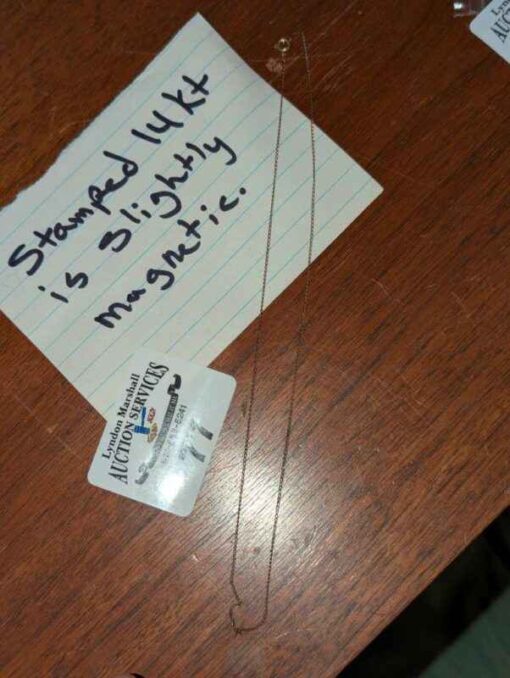 Stamped 14kt
is slightly
magnetic.
Lyndon Marshall
AUCTION SERVICES
77
Lyn
AUC